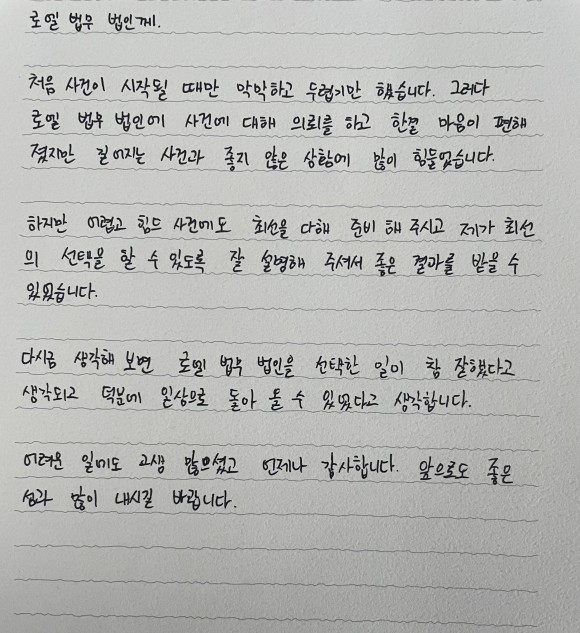 로엘 법무 법인께.
처음 사건이 시작될 때만 막막하고 두렵기만 했습니다. 그러다
로엘 법무 법인에 사건에 대해 의뢰를 하고 한결 마음이 편해
졌지만 길어지는 사건과 좋지 않은 상황에 많이 힘들었습니다.
하지만 어렵고 힘드 사건에도 최선을 다해 준비 해 주시고 제가 최선
의 선택을 할 수 있도록 잘 설명해 주셔서 좋은 결과를 받을 수
있었습니다.
다시금 생각해 보면 로엘 법무 법인을 선택한 일이 참 잘했다고
생각되고 덕분에 일상으로 돌아 올 수 있었다고 생각합니다.
어려운 일에도 고생 많으셨고 언제나 감사합니다. 앞으로도 좋은
성과 많이 내시길 바랍니다.